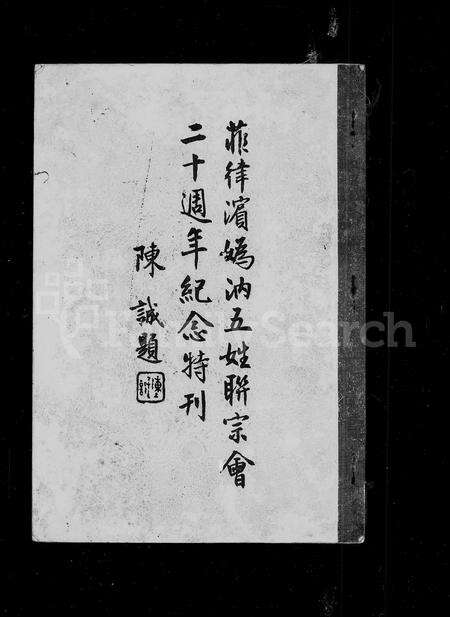 菲律濱媯汭五姓聯宗會
二十週年紀念特刊
陳誠題